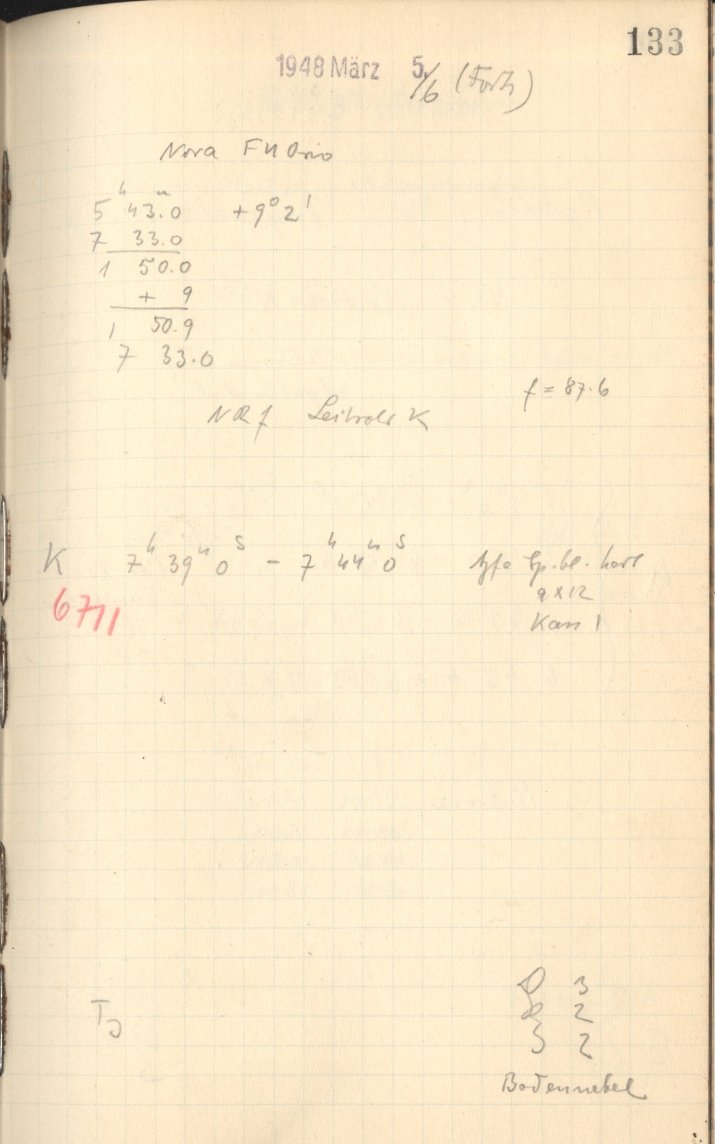 133
1948 März 5/6 (Forts)
Nova FU Orio
5ʰ 43.0ᵐ +9° 2'
7 33.0
1 50.0
+ 9
1 50.9
7 33.0
f = 87.6
NRf Leitrohr K
K 7ʰ 39ᵐ 0ˢ - 7ʰ 44ᵐ 0ˢ Agfa Sp. bl. hart
9 x 12
6711
Kass 1
D 3
R 2
TJ
3 2
Bodennebel